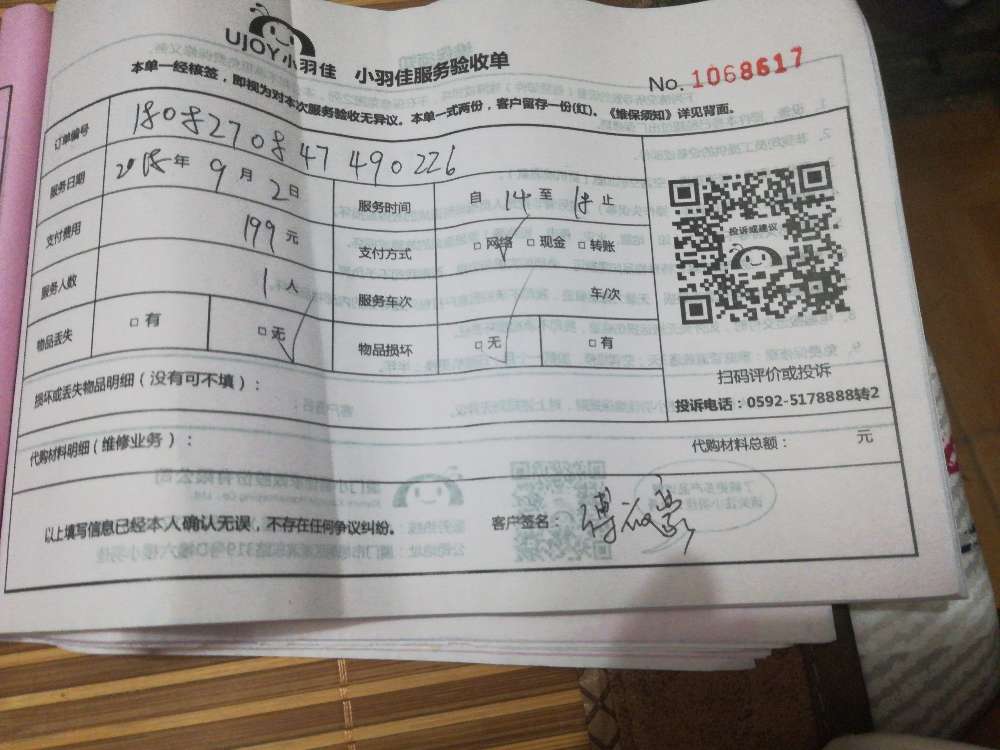 UJOY小羽佳 小羽佳服务验收单
No. 1068617
本单一经核签，即视为对本次服务验收无异议。本单一式两份，客户留存一份(红)。《维保须知》详见背面。
订单编号 180827084７490226
服务日期 2018年9月2日 服务时间 自 14 至 18 止
支付费用 199 元 支付方式 □ 网络 □ 现金 □ 转账
服务人数 1 人 服务车次 车/次
物品丢失 □ 有 □ 无 物品损坏 □ 无 □ 有
投诉或建议
扫码评价或投诉
投诉电话：0592-5178888转2
损坏或丢失物品明细（没有可不填）：
代购材料明细（维修业务）： 代购材料总额： 元
以上填写信息已经本人确认无误，不存在任何争议纠纷。 客户签名：